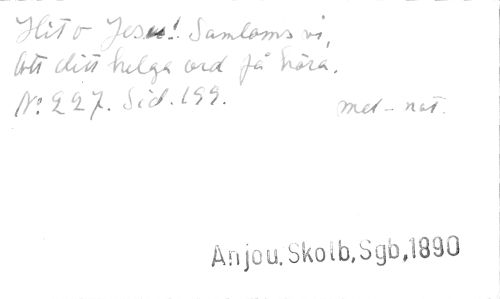 Hit o Jesu! Samloms vi,
Att ditt helga ord få höra.
No: 227. Sid. 199.
mel-not.
Anjou, Skolb, Sgb, 1890